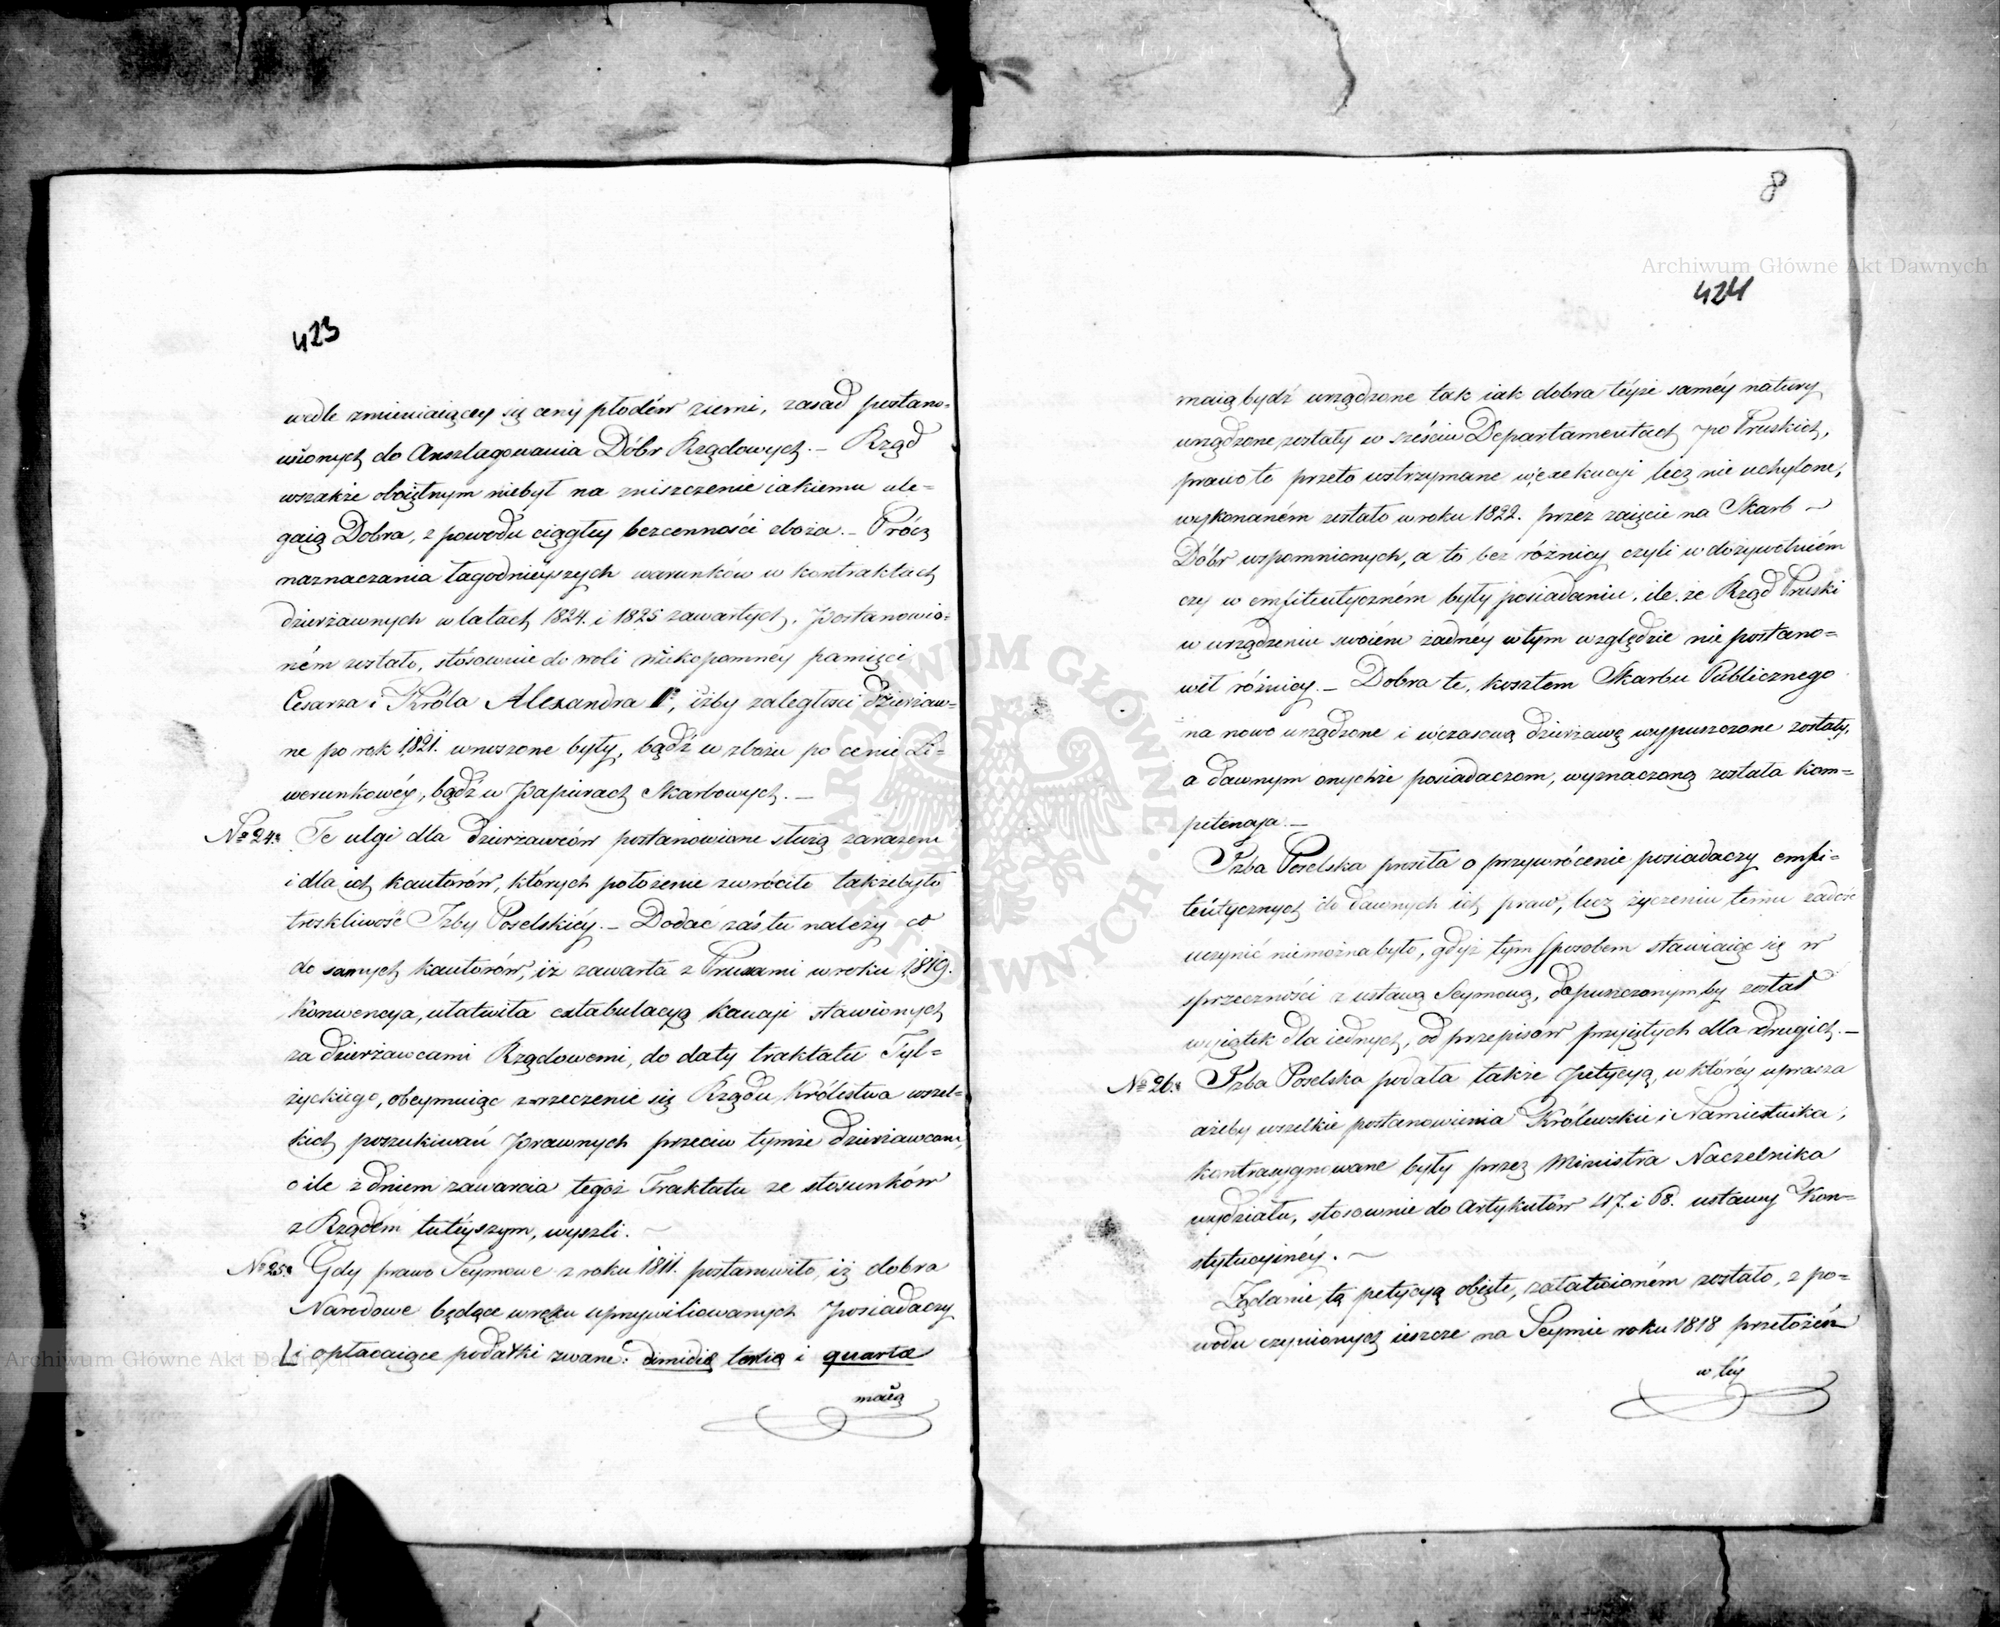 423
wedle zmieniaiącey się ceny płodów ziemi, zasad postano=
wionych do Anszlagowania Dóbr Rządowych. – Rząd
wszakże oboiętnym niebył na zniszczenie iakiemu ule=
gaią Dobra, z powodu ciągłey bezcenności zboża. – Prócz
naznaczania łagodnieyszych warunków w kontraktach
dzierżawnych w latach 1824. i 1825 zawartych, postanowio=
ném zostało, stósownie do woli wiekopomnéy pamięci
Cesarza i Króla Alexandra Iº, iżby zaległości dzierżaw=
ne po rok 1821. wnoszone były, bądź w zbożu po cenie Li=
werunkowéy, bądź w Papierach Skarbowych. —
Nº 24. Te ulgi dla dzierżawców postanowione służą zarazem
i dla ich kautorów, których położenie zwróciło także było
troskliwość Izby Poselskiéy. – Dodać zaś tu należy co
do samych kautorów, iż zawarta z Prusami w roku 1819.
Konwencya, ułatwiła extabulacyą kaucji stawionych
za dzierżawcami Rządowemi, do daty traktatu Tyl=
życkiego, obeymuiąc zrzeczenie się Rządu Królestwa wszel=
kich poszukiwań prawnych przeciw tymże dzierżawcom,
o ile z dniem zawarcia tegoż Traktatu ze stosunków
z Rządem tuteyszym, wyszli. ~
Nº 25. Gdy prawo Seymowe z roku 1811. postanowiło, iż dobra
Narodowe będące w ręku uprzywiliowanych posiadaczy
i opłacaiące podatki zwane: dimidia tertia i quarta
maią
8
424
maią bydź urządzone tak iak dobra téyże saméy natury
urządzone zostały w sześciu Departamentach po Pruskich,
prawo to przeto wstrzymane w exekucyi lecz nie uchylone,
wykonaném zostało w roku 1822. przez zaięcie na Skarb ~
Dóbr wspomnionych, a to bez różnicy czyli w dożywotniém
czy w emfiteutyczném były posiadaniu, ile że Rząd Pruski
w urządzeniu swoiém żadnéy w tym względzie nie postano=
wił różnicy. – Dobra te, kosztem Skarbu Publicznego
na nowo urządzone i w czasową dzierżawę wypuszczone zostały,
a dawnym onychże posiadaczom, wyznaczoną została kom=
petencya. —
Izba Poselska prosiła o przywrócenie posiadaczy emfi=
teutycznych do dawnych ich praw, lecz życzeniu temu zadość
uczynić niemożna było, gdyż tym sposobem stawiaiąc się w
sprzeczności z ustawą Seymową, dopuszczonym by został
wyiątek dla iednych, od przepisów przyiętych dla drugich. —
Nº 26. Izba Poselska podała także petycyą, w któréy uprasza
ażeby wszelkie postanowienia Królewskie i Namiestnika,
kontrasygnowane były przez Ministra Naczelnika
wydziału, stosownie do Artykułów 47. i 68. ustawy Kon=
stytucyinéy. ~
Żądanie tą petycyą obięte, załatwioném zostało, z po=
wodu czynionych ieszcze na Seymie roku 1818 przełożeń
w téy
Archiwum Główne Akt Dawnych
Archiwum Główne Akt Dawnych
ARCHIWUM GŁÓWNE AKT DAWNYCH